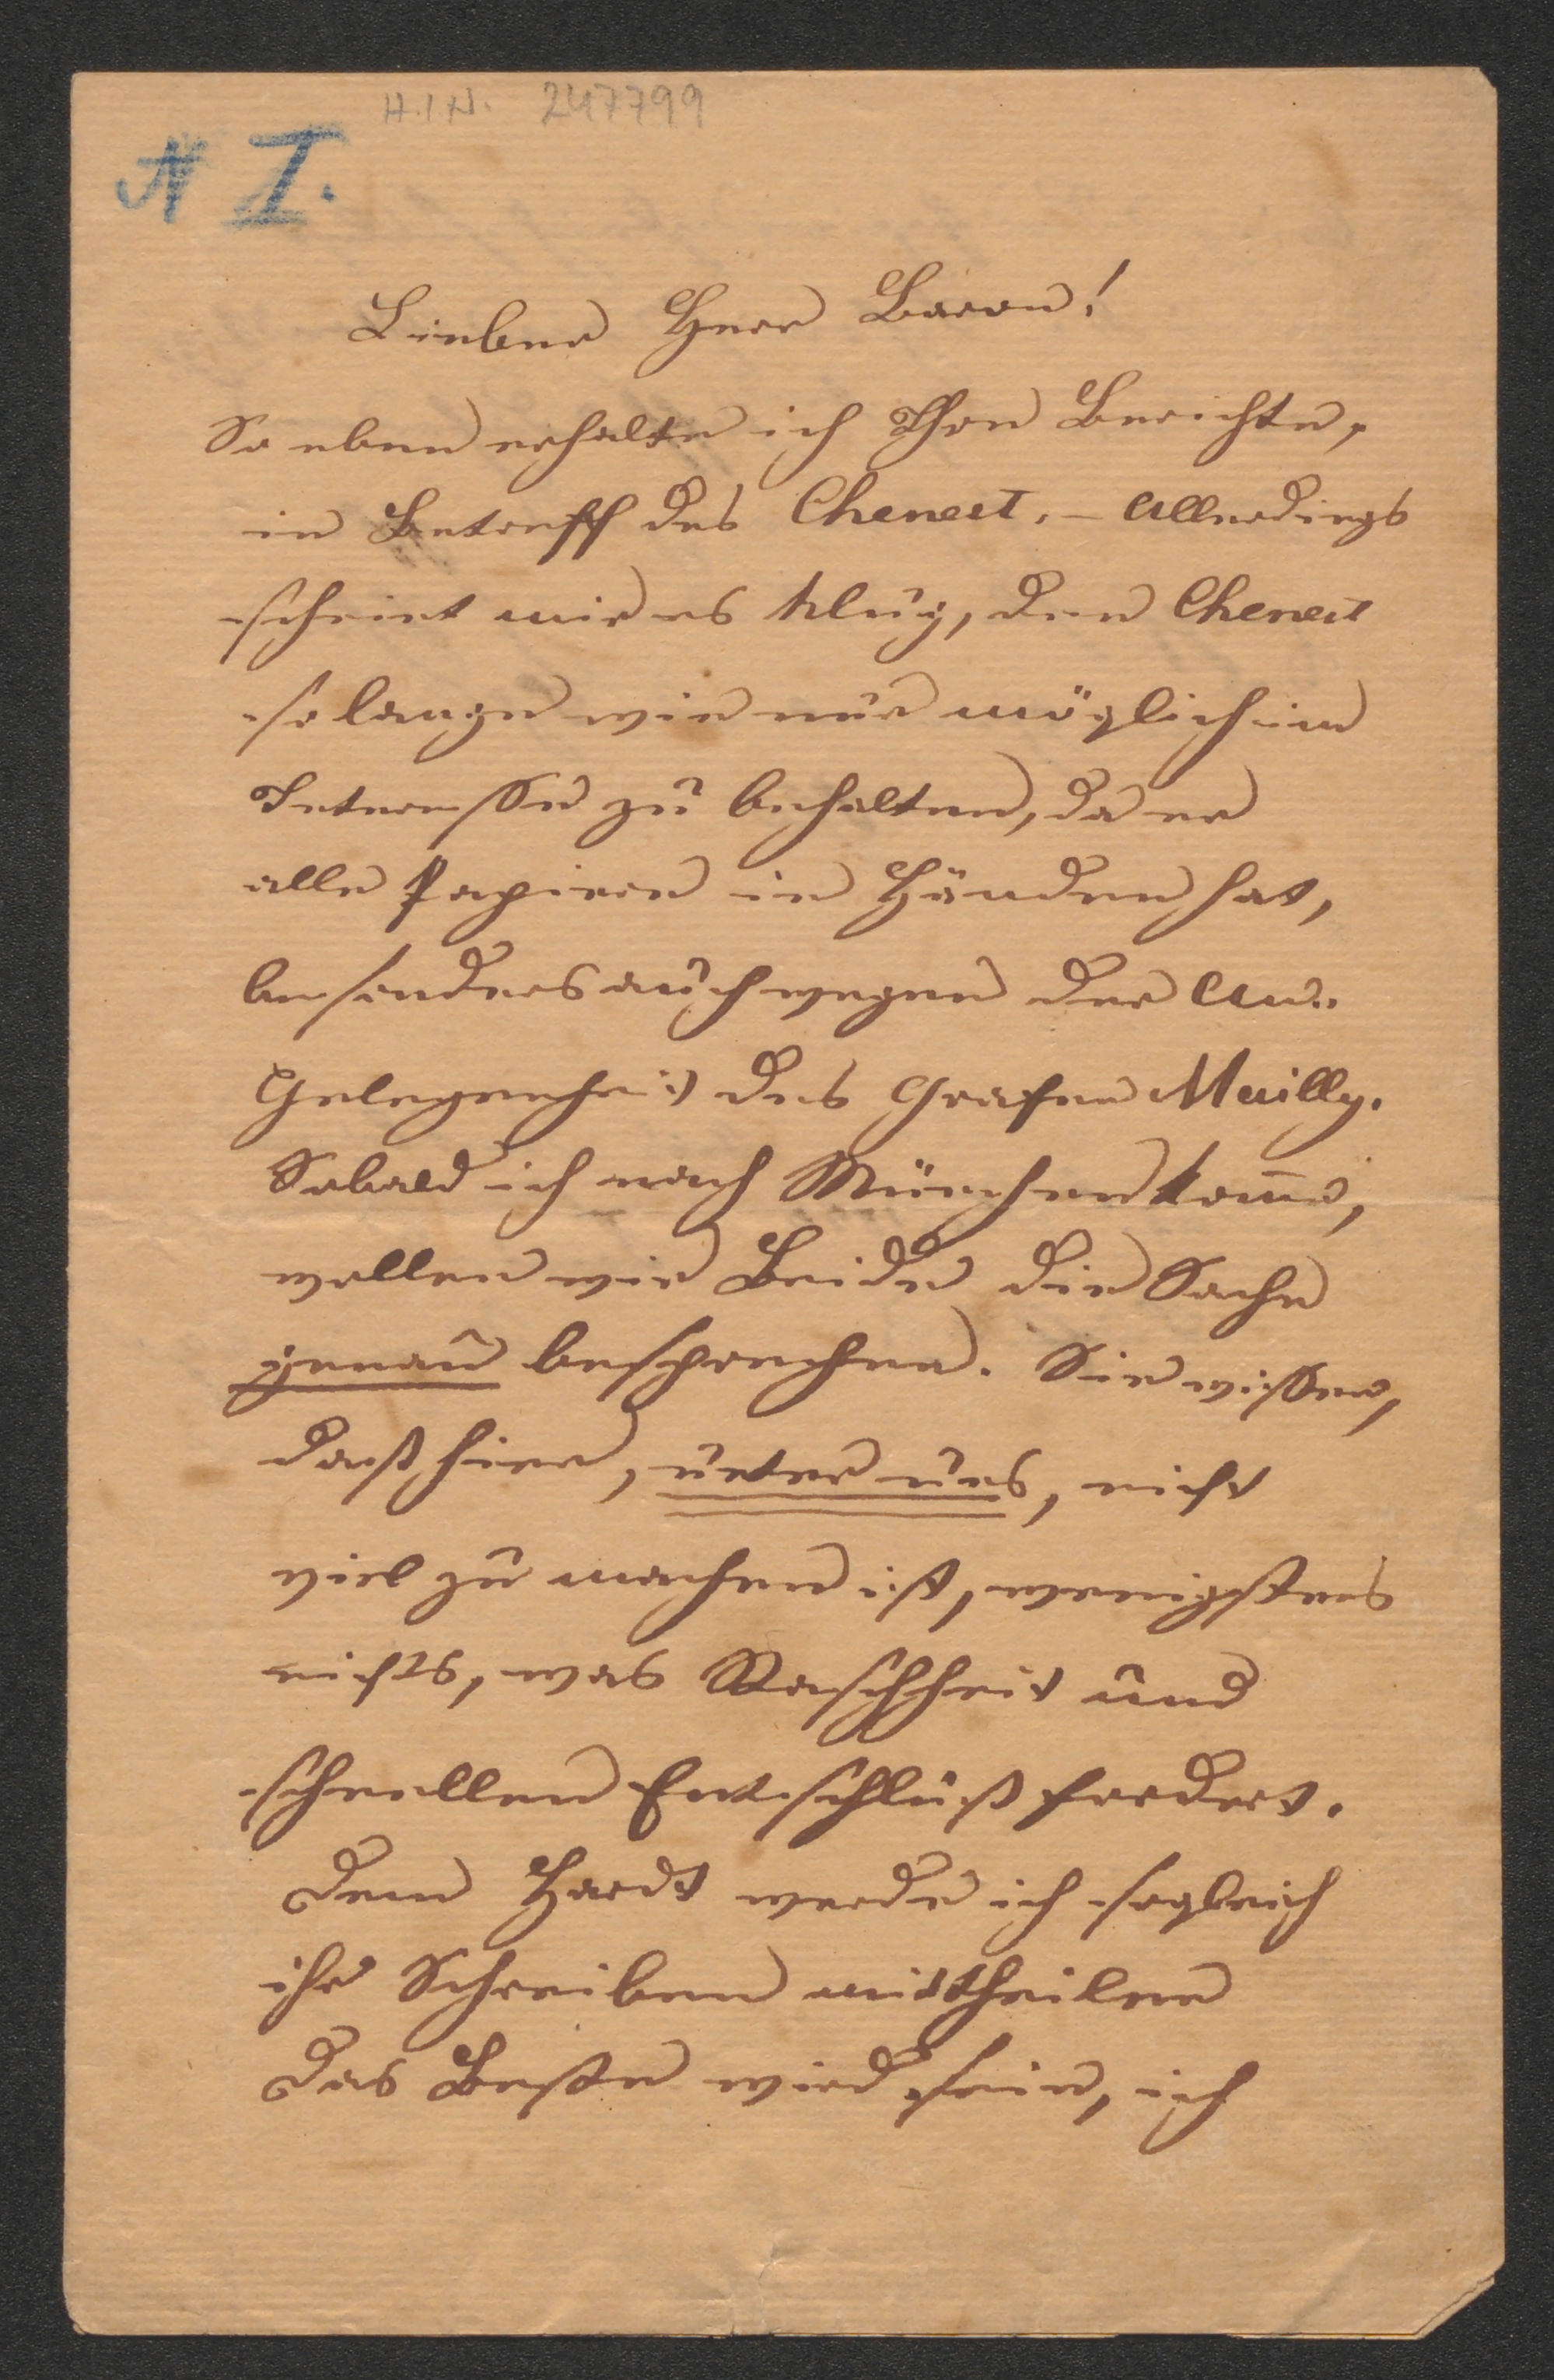 H.I.N. 247799
N I.
Lieber Herr Baron!
So eben erhalte ich Ihre Berichte,
in Betreff des Chenest. – Allerdings
scheint mir es klug, den Chenest
so lange wie nur möglich im
Interesse zu behalten, da er
alle Papiere in Händen hat,
besonders auch wegen der An-
Gelegenheit des Grafen Mailly.
Sobald ich nach München kom̄e,
wollen wir Beide die Sache
genau besprechen. Sie wissen,
daß hier, unter uns, nicht
viel zu machen ist, wenigstens
nichts, was Raschheit und
schnellen Entschluß fordert.
Dem Hardt werde ich sogleich
ihr Schreiben mittheilen
Das Beste wird sein, ich